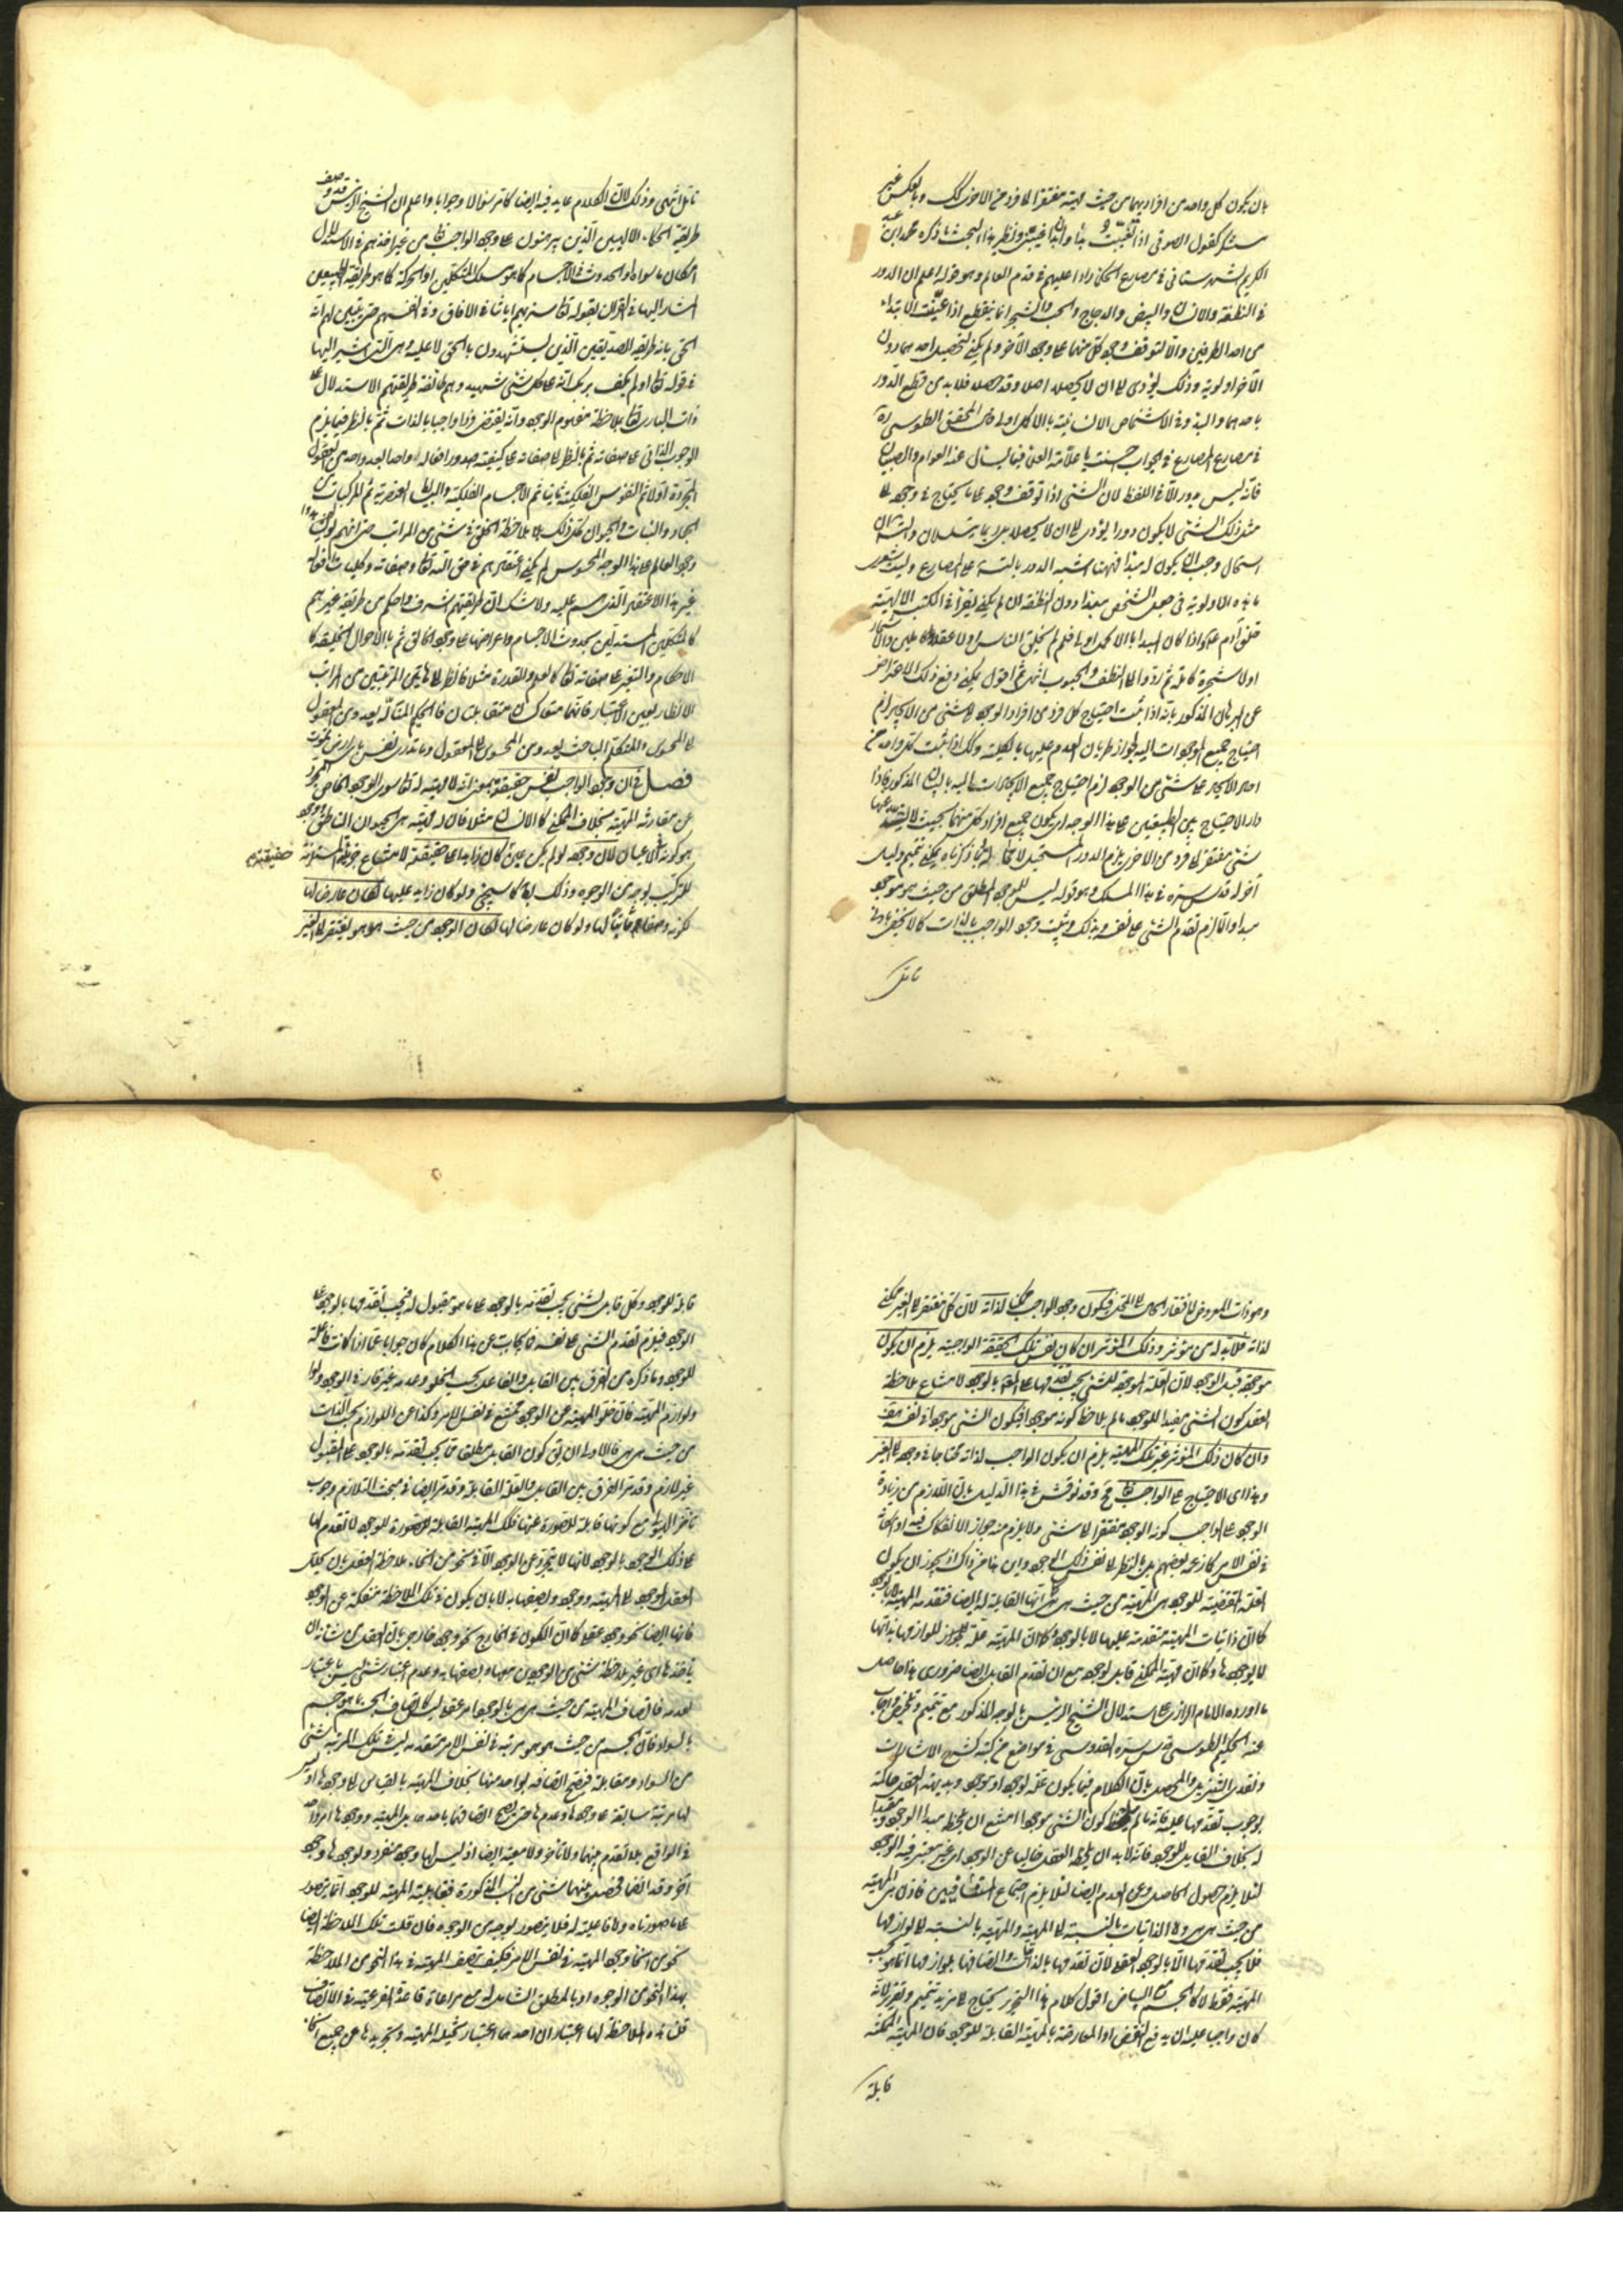 بان يكون كل واحد من افراديهما من حيث مهيته مفتقرا الى فرد من الاخر كك وبالعكس غير
مستنكر كقول الصوفي اذا
الكريم الشهرستاني في مصارع الحكماء رادا عليهم في قدم العالم وهو قوله اعلم ان الدور
في النطفة والانسان والبيض والدجاج والحب والشجر انما ينقطع اذا عينت الابتداء
من احد الطرفين والا لتوقف وجود كل منهما على وجود الآخر ولم يكن لتحصيل احدهما دون
الآخر اولوية وذلك يؤدى الى ان لا يحصلا اصلا وقد حصلا فلابد من قطع الدور
باحدهما والبدو في الاشخاص الانسانية بالاكمل اولى وقال المحقق الطوسي ره
في مصارع المصارع في الجواب احسنت يا علامة العلماء فيما يسأل عنه العوام والصبيان
فانه ليس بدور الا في اللفظ لان الشئ اذا توقف وجوده على ما يحتاج في وجوده الى
مثل ذلك الشئ لا يكون دورا يؤدى الى ان لا يحصلا بل ربما يتسلسلان والتسلسل ان
استحال وجب ان يكون له مبدأ فههنا اشتبه الدور بالتسلسل على المصارع وليت شعرى
ما هذه الاولوية في جعل الشخص مبدءا دون النطفة ان لم يكن يقرأ في الكتب الالهية
خلق آدم
اولا شجرة كاملة ثم ردوا الى النطف والحبوب انتهى ثم اقول يمكن دفع ذلك الاعتراض
عن البرهان المذكور بانه اذا ثبت احتياج كل فرد من افراد الوجود الى شئ من الايجاد لزم
احتياج جميع الموجودات اليه لجواز طريان العدم عليها بالكلية وكك اذا ثبت كل واحد من
احاد الايجاد على شئ من الوجود لزم احتياج جميع الايجادات اليه بالبيان المذكور فاذا
دار الاحتياج بين الطبيعتين على هذا الوجه اى يكون جميع افراد كل منهما بحيث لا يشذ عنها
شئ مفتقر الى فرد من الاخرى يلزم الدور المستحيل لا محالة
آخر له قدس سره في هذا المسلك وهو قوله ليس للموجود المطلق من حيث هو موجود
مبدأ والا لزم تقدم الشئ على نفسه وبذلك يثبت وجود الواجب بالذات كما لا يخفى بادنى
تامل
تامل انتهى وذلك لان الكلام عايد فيه ايضا كما مر سؤالا وجوابا واعلم ان الشيخ الرئيس قد وصف
طريقة الحكماء الالهيين الذين يبرهنون على وجود الواجب تعالى من غير اخذهم في الاستدلال
امكان ما سواه او الحدوث في الاجسام كما هو مسلك المتكلمين او الحركة كما هو طريقة الطبيعيين
المشار اليها في القرآن بقوله تعالى سنريهم اياتنا في الافاق وفي انفسهم حتى يتبين لهم انه
الحق بانه طريقة الصديقين الذين يستشهدون بالحق لا عليه وهى التى اشير اليها
في قوله تعالى اولم يكف بربك انه على كل شئ شهيد وهم طائفة طريقتهم الاستدلال على
ذات البارى تعالى بملاحظة مفهوم الوجود وانه يقتضى فردا واجبا بالذات ثم بالنظر فيما يلزم
الوجوب الذاتى على صفاته ثم بالنظر الى صفاته على كيفية صدور افعاله واحدا بعد واحد من العقول
المجردة اولا ثم النفوس الفلكية ثانيا ثم الاجسام الفلكية والبسائط العنصرية ثم المركبات من
الجماد والنبات والحيوان كل ذلك بلا ملاحظة الخلق في شئ من المراتب حتى انهم لو لم يشاهدوا
وجود العالم على هذا الوجه المحسوس لم يكن اعتقادهم في حق الله تعالى وصفاته وكليات افعاله
غير هذا الاعتقاد الذى هم عليه ولا شك ان طريقتهم اشرف واحكم من طريقة غيرهم
كالمتكلمين المستدلين بحدوث الاجسام واعراضها على وجود الخالق ثم بالاحوال الخليقة كا
الاحكام والتغير على صفاته تعالى كالعلم والقدرة مثلا فانظر الى هاتين المرتبتين من المراتب
الانظار بعين الاعتبار فانهما متعاكسان متقابلتان فالحكيم المتأله يعدو من المعقول
الى المحسوس والمتكلم الباحث يعدو من المحسوس الى المعقول وما تدرى نفس باى ارض تموت
فصل في ان وجود الواجب نفس حقيقته بمعنى انه لا مهية له تعالى سوى الوجود الخاص المجرد
عن مقارنة المهية بخلاف الممكن كالانسان مثلا فان له مهية هى الحيوان الناطق ووجود
هو كونه في الاعيان لان وجوده لو لم يكن عين كان زايدا على حقيقته لامتناع جزئيته المستلزمة
للتركيب بوجه من الوجوه وذلك كما سيجئ ولو كان زايدا عليها لكان عارضا لها
لكونه وصفا ثابتا لها ولو كان عارضا لها لكان الوجود من حيث هو هو يفتقر الى الغير
حقيقته
وهو ذات المعروض لافتقار الحال الى المحل فيكون وجود الواجب ممكنا لذاته لان كل مفتقر الى الغير ممكن
لذاته فلا بد له من مؤثر وذلك المؤثر ان كان نفس تلك الحقيقة الواجبية يلزم ان يكون
موجودة قبل الوجود لان العلة الموجدة للشئ يجب تقدمها على المعلول بالوجود لامتناع ملاحظة
العقل كون الشئ مفيدا للوجود ما لم يلاحظ كونه موجودا فيكون الشئ موجودا قبل نفسه هف
وان كان ذلك المؤثر غير تلك المهية يلزم ان يكون الواجب لذاته محتاجا في وجوده الى الغير
وهذا اى الاحتياج على الواجب تعالى مح وقد نوقش في هذا الدليل بان اللازم من زيادة
الوجود على الواجب كونه الوجود مفتقرا الى شئ ولا يلزم منه جواز الانفكاك فيه
في نفس الامر كما زعمه بعضهم بل بالنظر الى نفس ذلك الوجود واين هذا من ذاك اذ يجوز ان يكون
العلة المقتضية للوجود هى المهية من حيث هى هى كما انها القابلة له ايضا فتقدمه المهية لا بالوجود
كما ان ذاتيات المهية متقدمة عليها لا بالوجود وكما ان المهية علة للوازمها بذاتها
لا بوجودها وكما ان مهية الممكن قابل لوجوده مع ان تقدم القابل ايضا ضرورى هذا حاصل
ما اورده الامام الرازى على استدلال الشيخ الرئيس بالوجه المذكور مع تتميم وتلخيص واجاب
عنه الحكيم الطوسى قدس سره القدوسى في مواضع من كتبه كشرح الاشارات
ونقد التنزيل والمحصل بان الكلام فيما يكون علة لوجود او موجود وبديهة العقل حاكمة
بوجوب تقدمها عليه فانه ما لم يلحظ كون الشئ موجودا امتنع ان يلحظ مبدأ للوجود ومفيدا
له بخلاف القابل للوجود فانه لابد ان يلحظه العقل خاليا عن الوجود اى غير معتبر فيه الوجود
لئلا يلزم حصول الحاصل وعن العدم ايضا لئلا يلزم اجتماع المتنافيين فاذن هى المهية
من حيث هى هى واما الذاتيات بالنسبة الى المهية والمهية بالنسبة الى لوازمها
فلا يجب تقدمها الا بالوجود العقلى لان تقدمها بالذات واتصافها بلوازمها انما هو بحسب
المهية فقط لا كالجسم مع البياض اقول كلام هذا النحرير يحتاج الى مزيد تتميم وتقرير لانه
كان واجبا عليه ان يدفع النقض او المعارضة بالمهية القابلة للوجود فان المهية الممكنة
قابلة
قابلة للوجود وكل قابل لشئ يجب تقدمه بالوجود على ما هو مقبول له فيجب تقدمها بالوجود على
الوجود فيلزم تقدم الشئ على نفسه فما يجاب عن هذا الكلام كان جوابا عما اذا كانت فاعلة
للوجود وما ذكره من الفرق بين القابل والفاعل بحسب الخلو وعدمه غير قار في الوجود
ولوازم المهية فان خلو المهية عن الوجود ممتنع في نفس الامر وكذا عن اللوازم بحسب الذات
من حيث هى هى فالاولى ان يق كون القابل مطلقا مما يجب تقدمه بالوجود على المقبول
غير لازم وقد مر الفرق بين القابل والعلة القابلة وقد مر ايضا في مبحث التلازم وجوب
تاخر الهيولى مع كونها قابلة للصورة عنها فتلك المهية القابلة للصورة للوجود لا تقدم لها
على ذلك الوجود بالوجود لانها لا يتجرد عن الوجود الا في نحو من انحاء ملاحظة العقل بان يحلل
العقل الموجود الى المهية ووجود ويصفها به لا بان يكون في تلك الملاحظة منفكة عن الوجود
فانها ايضا نحو وجود عقلى كما ان الكون في الخارج نحو وجود خارجى بل بان العقل من شانه ان
ياخذها من غير ملاحظة شئ من الوجودين معها ويصفها به وعدم اعتبار شئ ليس باعتبار
لعدمه فاتصاف المهية من حيث هى هى بالوجود امر عقلى ليس كاتصاف الجسم بما هو جسم
بالسواد فان الجسم من حيث هو هو مرتبة في نفس الامر متقدمة ليس في تلك المرتبة شئ
من السواد ومقابله فيصح اتصافه بواحد منهما بخلاف المهية بالقياس الى وجودها اذ ليس
لها مرتبة سابقة على وجودها وعدمها حتى يصح اتصافها باحدهما بل المهية ووجودها امر واحد
في الواقع بلا تقدم بينهما ولا تاخر ولا معية ايضا اذ ليس لها وجود منفرد ولوجودها وجود
آخر وقد اتضحا فيحصل بينهما شئ من النسب المذكورة فقابلية المهية للوجود انما يتصور
على ما صورناه واما فاعليته له فلا يتصور بوجه من الوجوه فان قلت تلك الملاحظة ايضا
نحو من انحاء وجود المهية في نفس الامر فكيف يتصف المهية في هذا النحو من الملاحظة
بهذا النحو من الوجود او بالمطلق الشامل له مع مراعاة قاعدة الفرعية في الاتصاف
قلت هذه الملاحظة لها اعتباران احدهما اعتبار تخلية المهية وتجريدها عن جميع انحاء